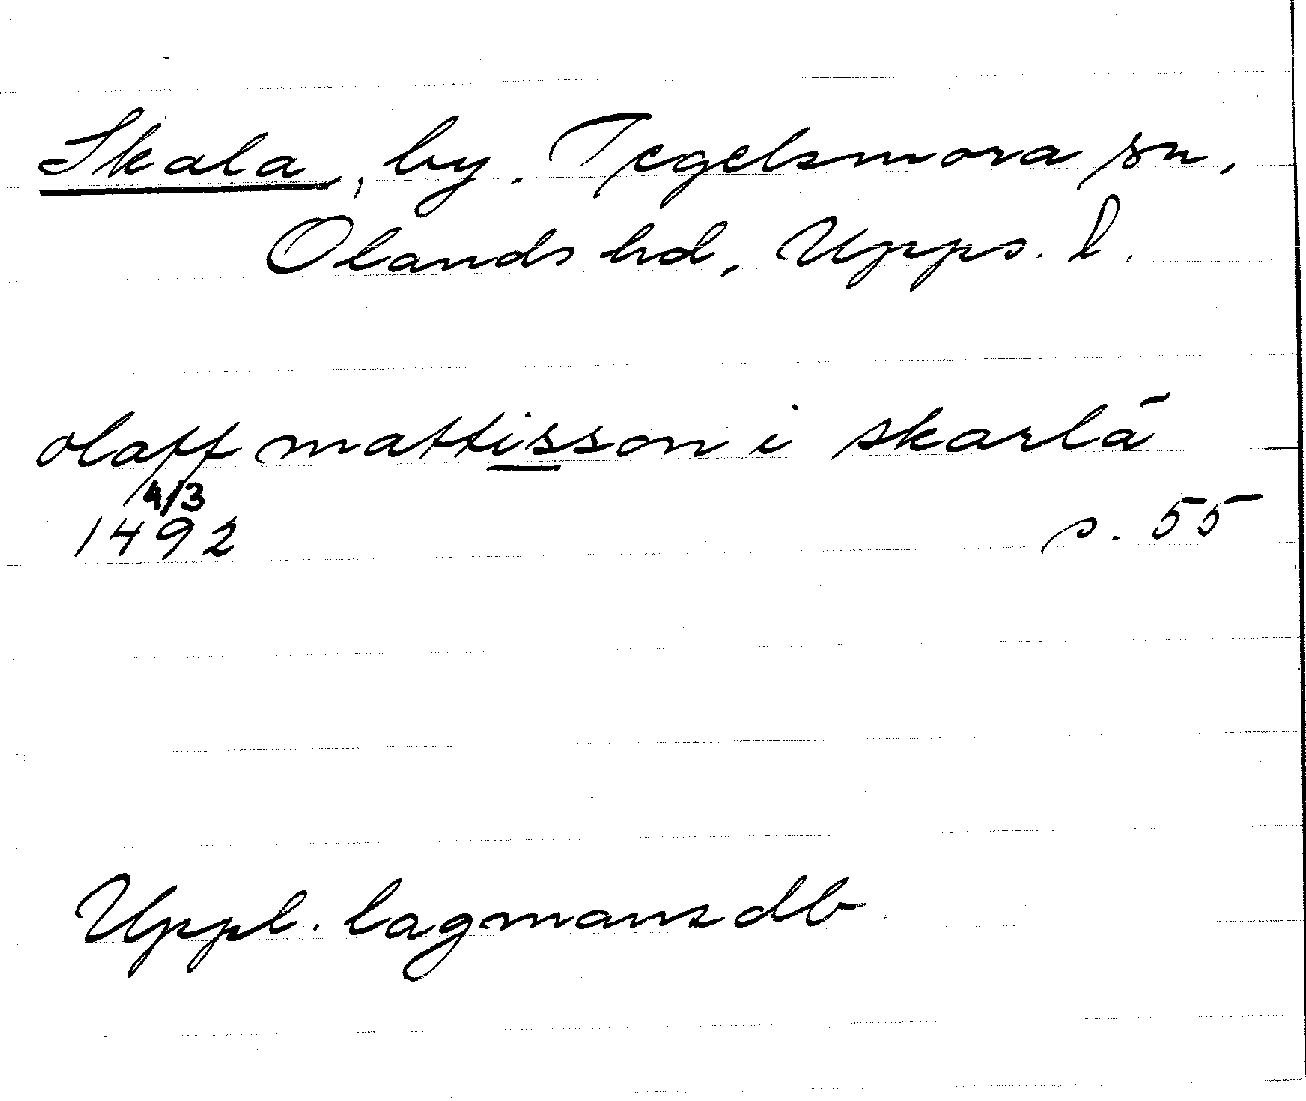 Skala, by. Tegelsmora sn,
Olands hd, Upps. l.
olaff mattisson i skarlā
4/3
1492 s. 55
Uppl. lagmansdb